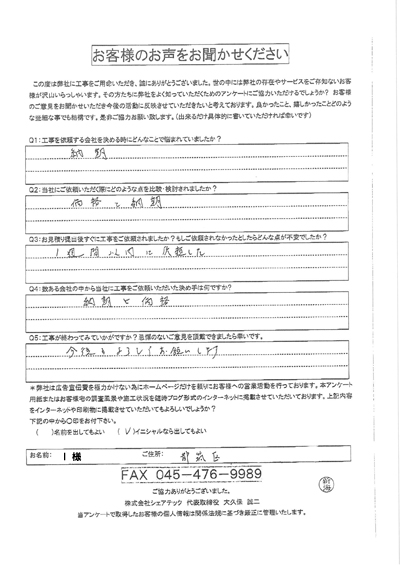 お客様のお声をお聞かせください
この度は弊社に工事をご用命いただき、誠にありがとうございました。世の中には弊社の存在やサービスをご存知ないお客
様が沢山いらっしゃいます。その方たちに弊社をよく知っていただくためのアンケートにご協力いただけるでしょうか? お客様
のご意見をお聞かせいただき今後の活動に反映させていただきたいと考えております。良かったこと、嬉しかったことどのよう
な些細な事でも結構です。是非ご協力お願い致します。(出来るだけ具体的に書いていただければ幸いです)
Q1:工事を依頼する会社を決める時にどんなことで悩まれていましたか?
納期
Q2:当社にご依頼いただく際にどのような点を比較・検討されましたか?
価格と納期
Q3:お見積り提出後すぐに工事をご依頼されましたか?もしご依頼されなかったとしたらどんな点が不安でしたか?
1週間以内に依頼した
Q4:数ある会社の中から当社に工事をご依頼いただいた決め手は何ですか?
納期と価格
Q5:工事が終わってみていかがですか?忌憚のないご意見を頂戴できましたら幸いです。
今後もよろしくお願いします
*弊社は広告宣伝費を極力かけない為にホームページだけを頼りにお客様への営業活動を行っております。本アンケート
用紙またはお客様宅の調査風景や施工状況を随時ブログ形式のインターネットに掲載させていただいております。上記内容
をインターネットや印刷物に掲載させていただいてもよろしいでしょうか?
下記の中から○印をお付け下さい。
( )名前を出してもよい (V)イニシャルなら出してもよい
お名前: I 様 ご住所: 都筑区
FAX 045-476-9989
ご協力ありがとうございました。
株式会社シェアテック 代表取締役 大久保 誠二
当アンケートで取得したお客様の個人情報は関係法規に基づき厳正に管理いたします。